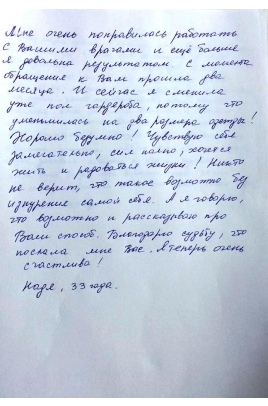 Мне очень понравилось работать
с Вашими врачами и ещё больше
я довольна результатом. С момента
обращения к Вам прошла два
месяца. И сейчас я сменила
уже пол гардероба, потому что
уменьшилась на два размера одежды!
Хорошо безумно! Чувствую себя
замечательно, сил полно, хочется
жить и радоваться жизни! Никто
не верит, что такое возможно без
изнурение самой себя. А я говорю,
что возможно и рассказываю про
Ваш способ. Благодарю судьбу, что
послала мне Вас. Я теперь очень
счастлива!
Надя, 33 года.